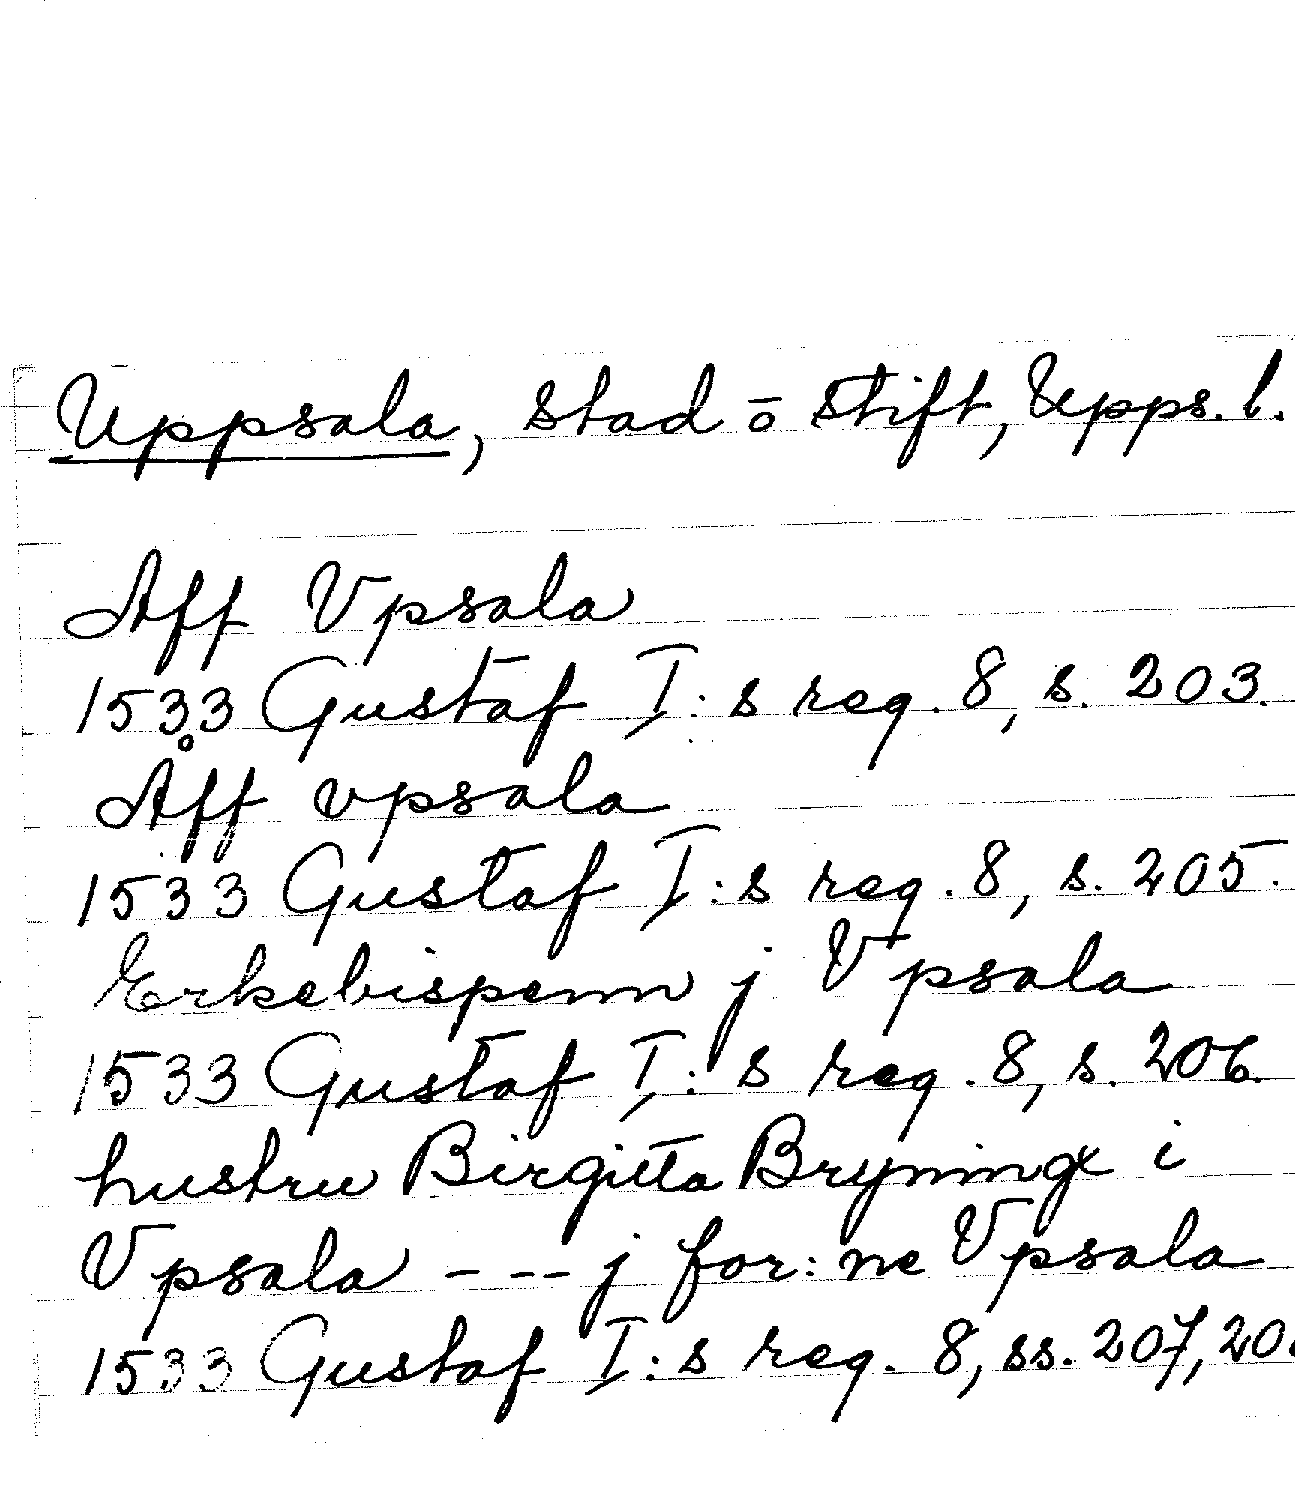 Uppsala, stad ō stift, Upps. l.
Aff Vpsala
1533 Gustaf I:s reg. 8, s. 203.
Åff vpsala
1533 Gustaf I:s reg. 8, s. 205.
Erkebispenn j Vpsala
1533 Gustaf I:s reg. 8, s. 206.
hustru Birgitta Bryningx i
Vpsala --- j for:ne Vpsala
1533 Gustaf I:s reg. 8, ss. 207,